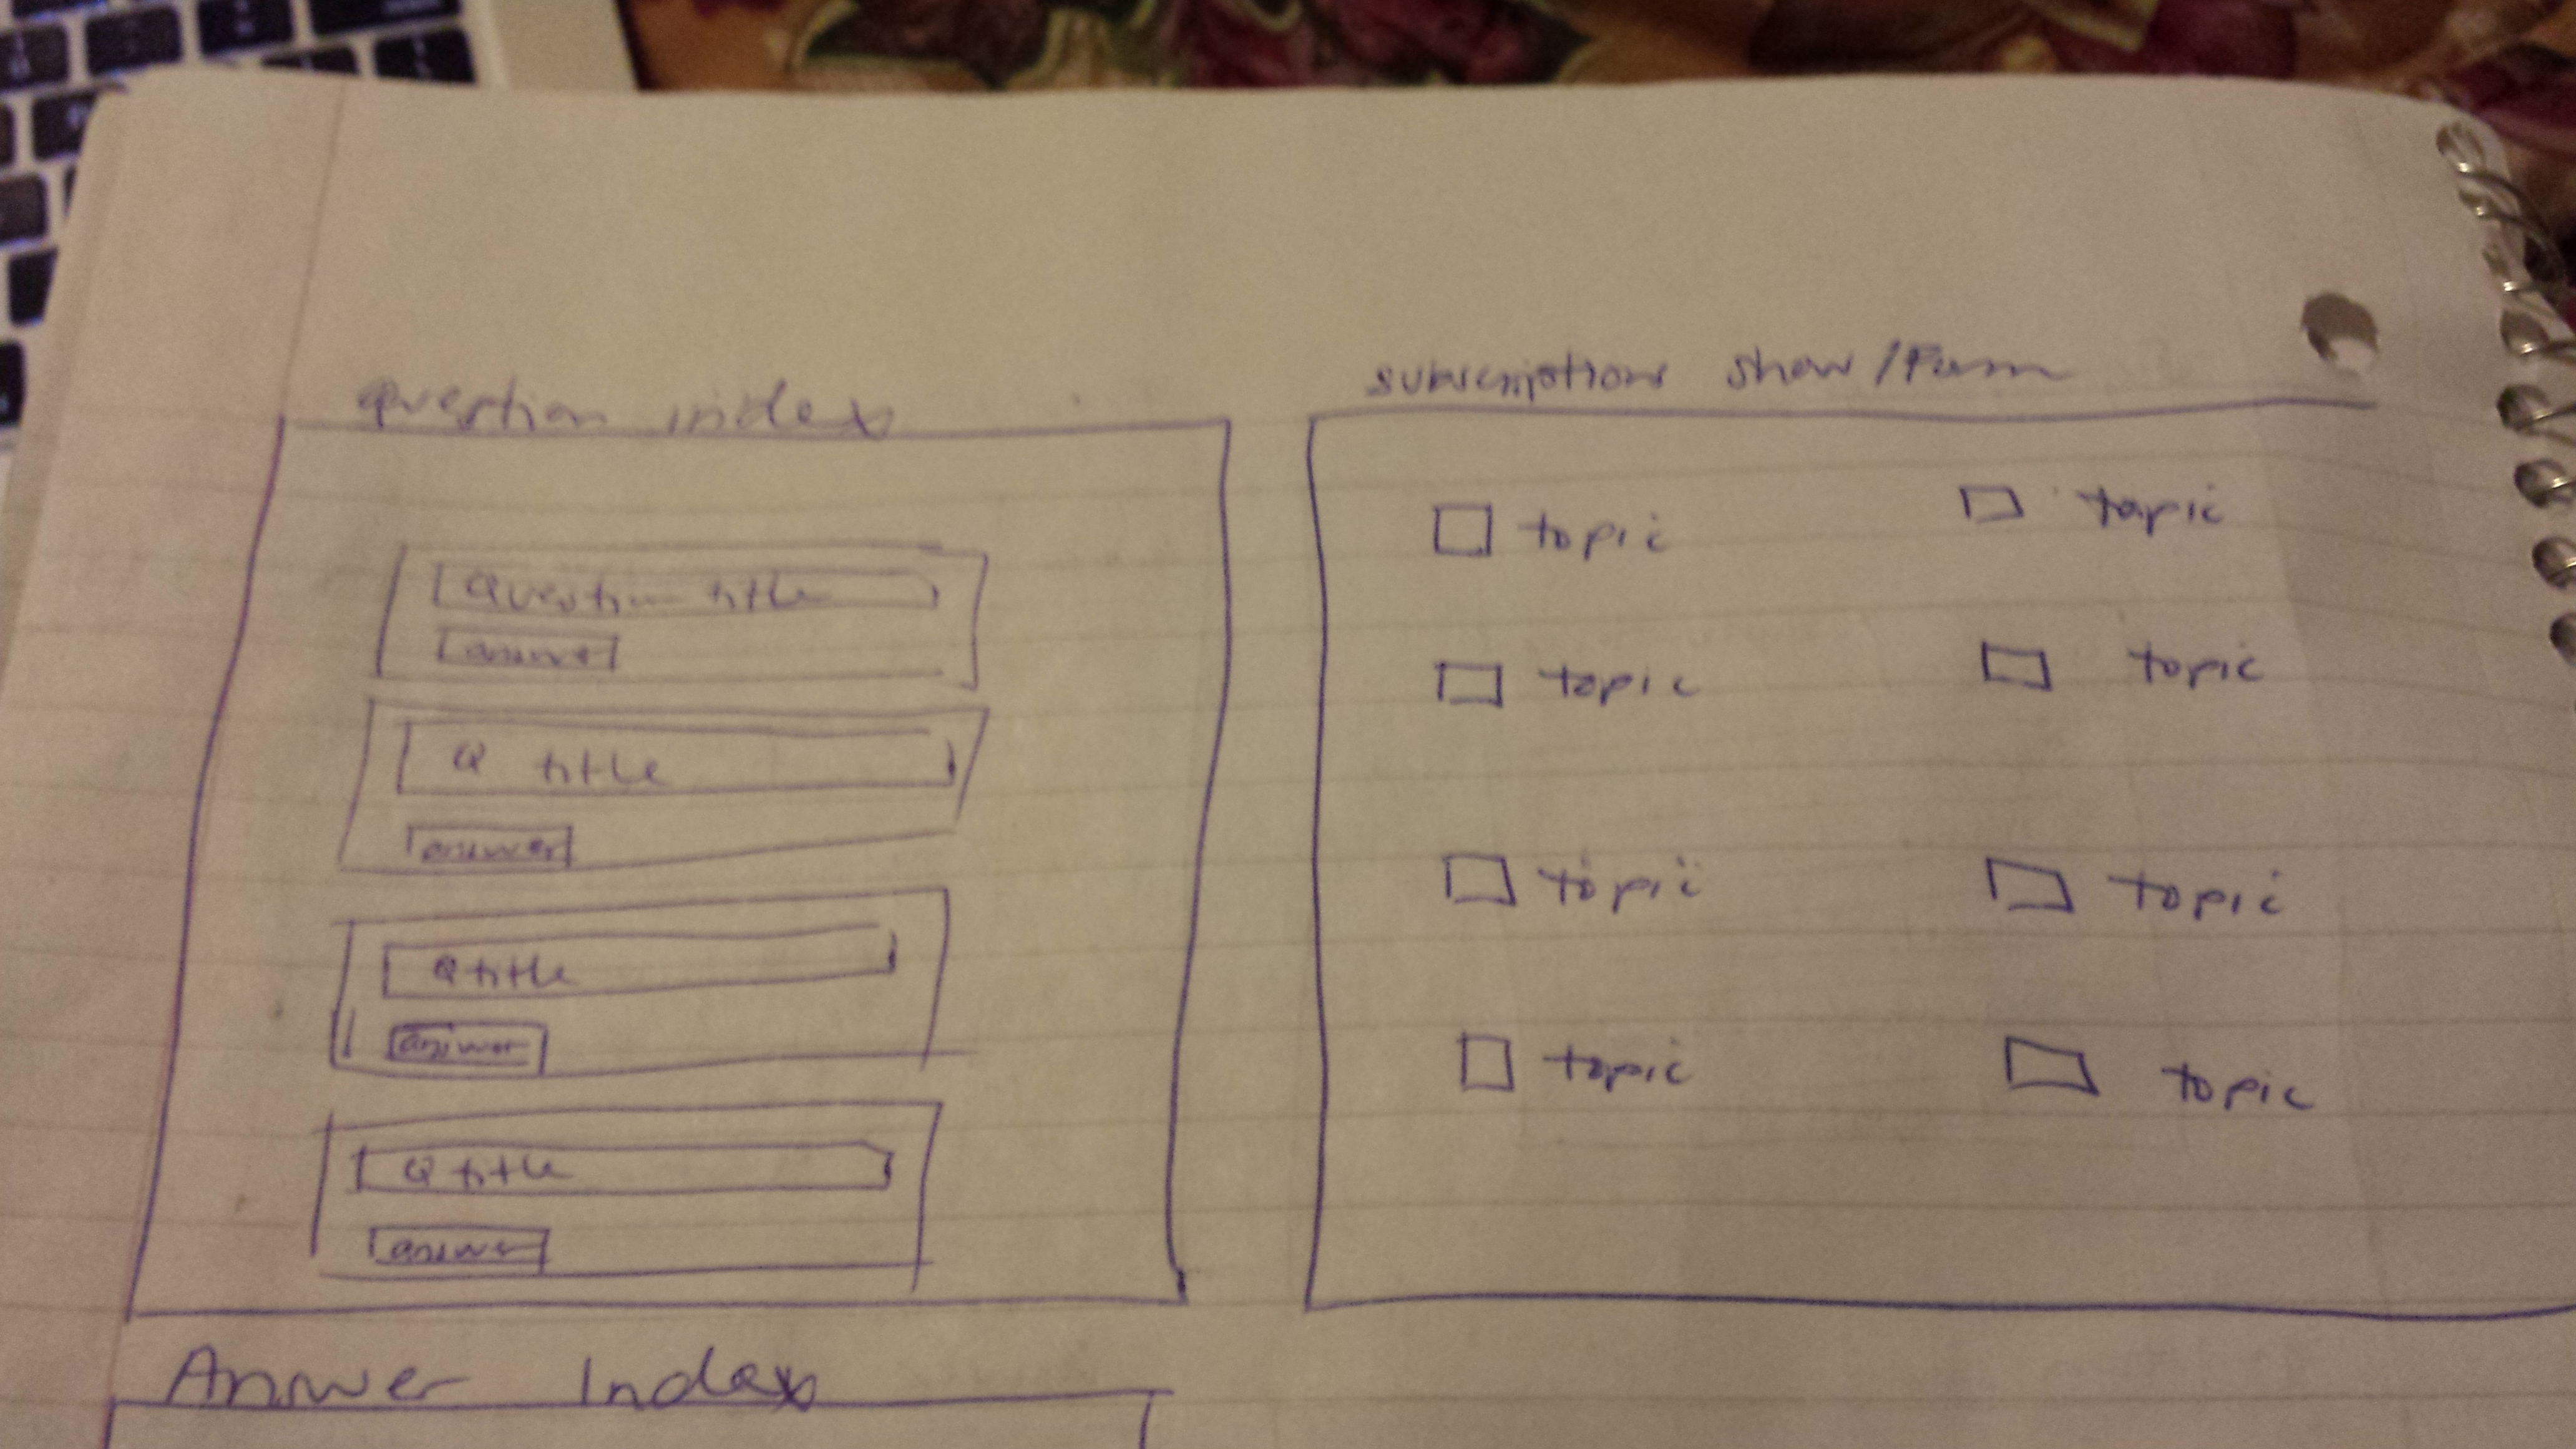 question index
Question title
answer
Q title
answer
Q title
answer
Q title
answer
Answer Index
subscriptions show/Form
topic topic
topic topic
topic topic
topic topic